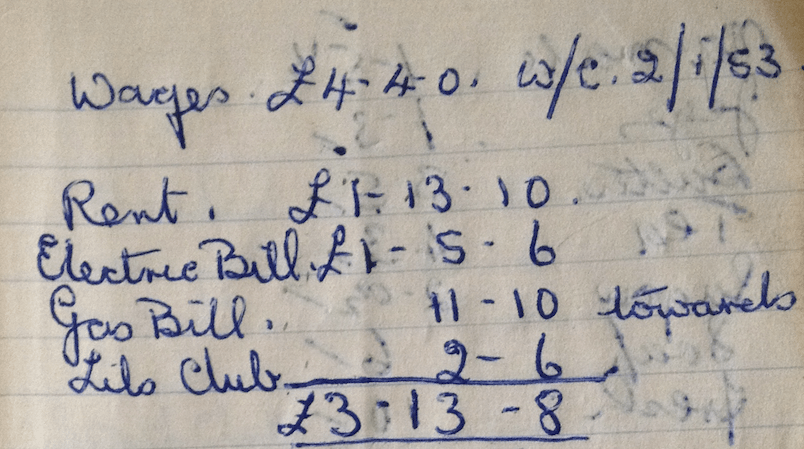 Wages. £4-4-0. w/c. 2/1/53.
Rent. £1-13-10.
Electric Bill. £1-5-6
Gas Bill. 11-10 towards
Lilo Club 2-6
£3-13-8